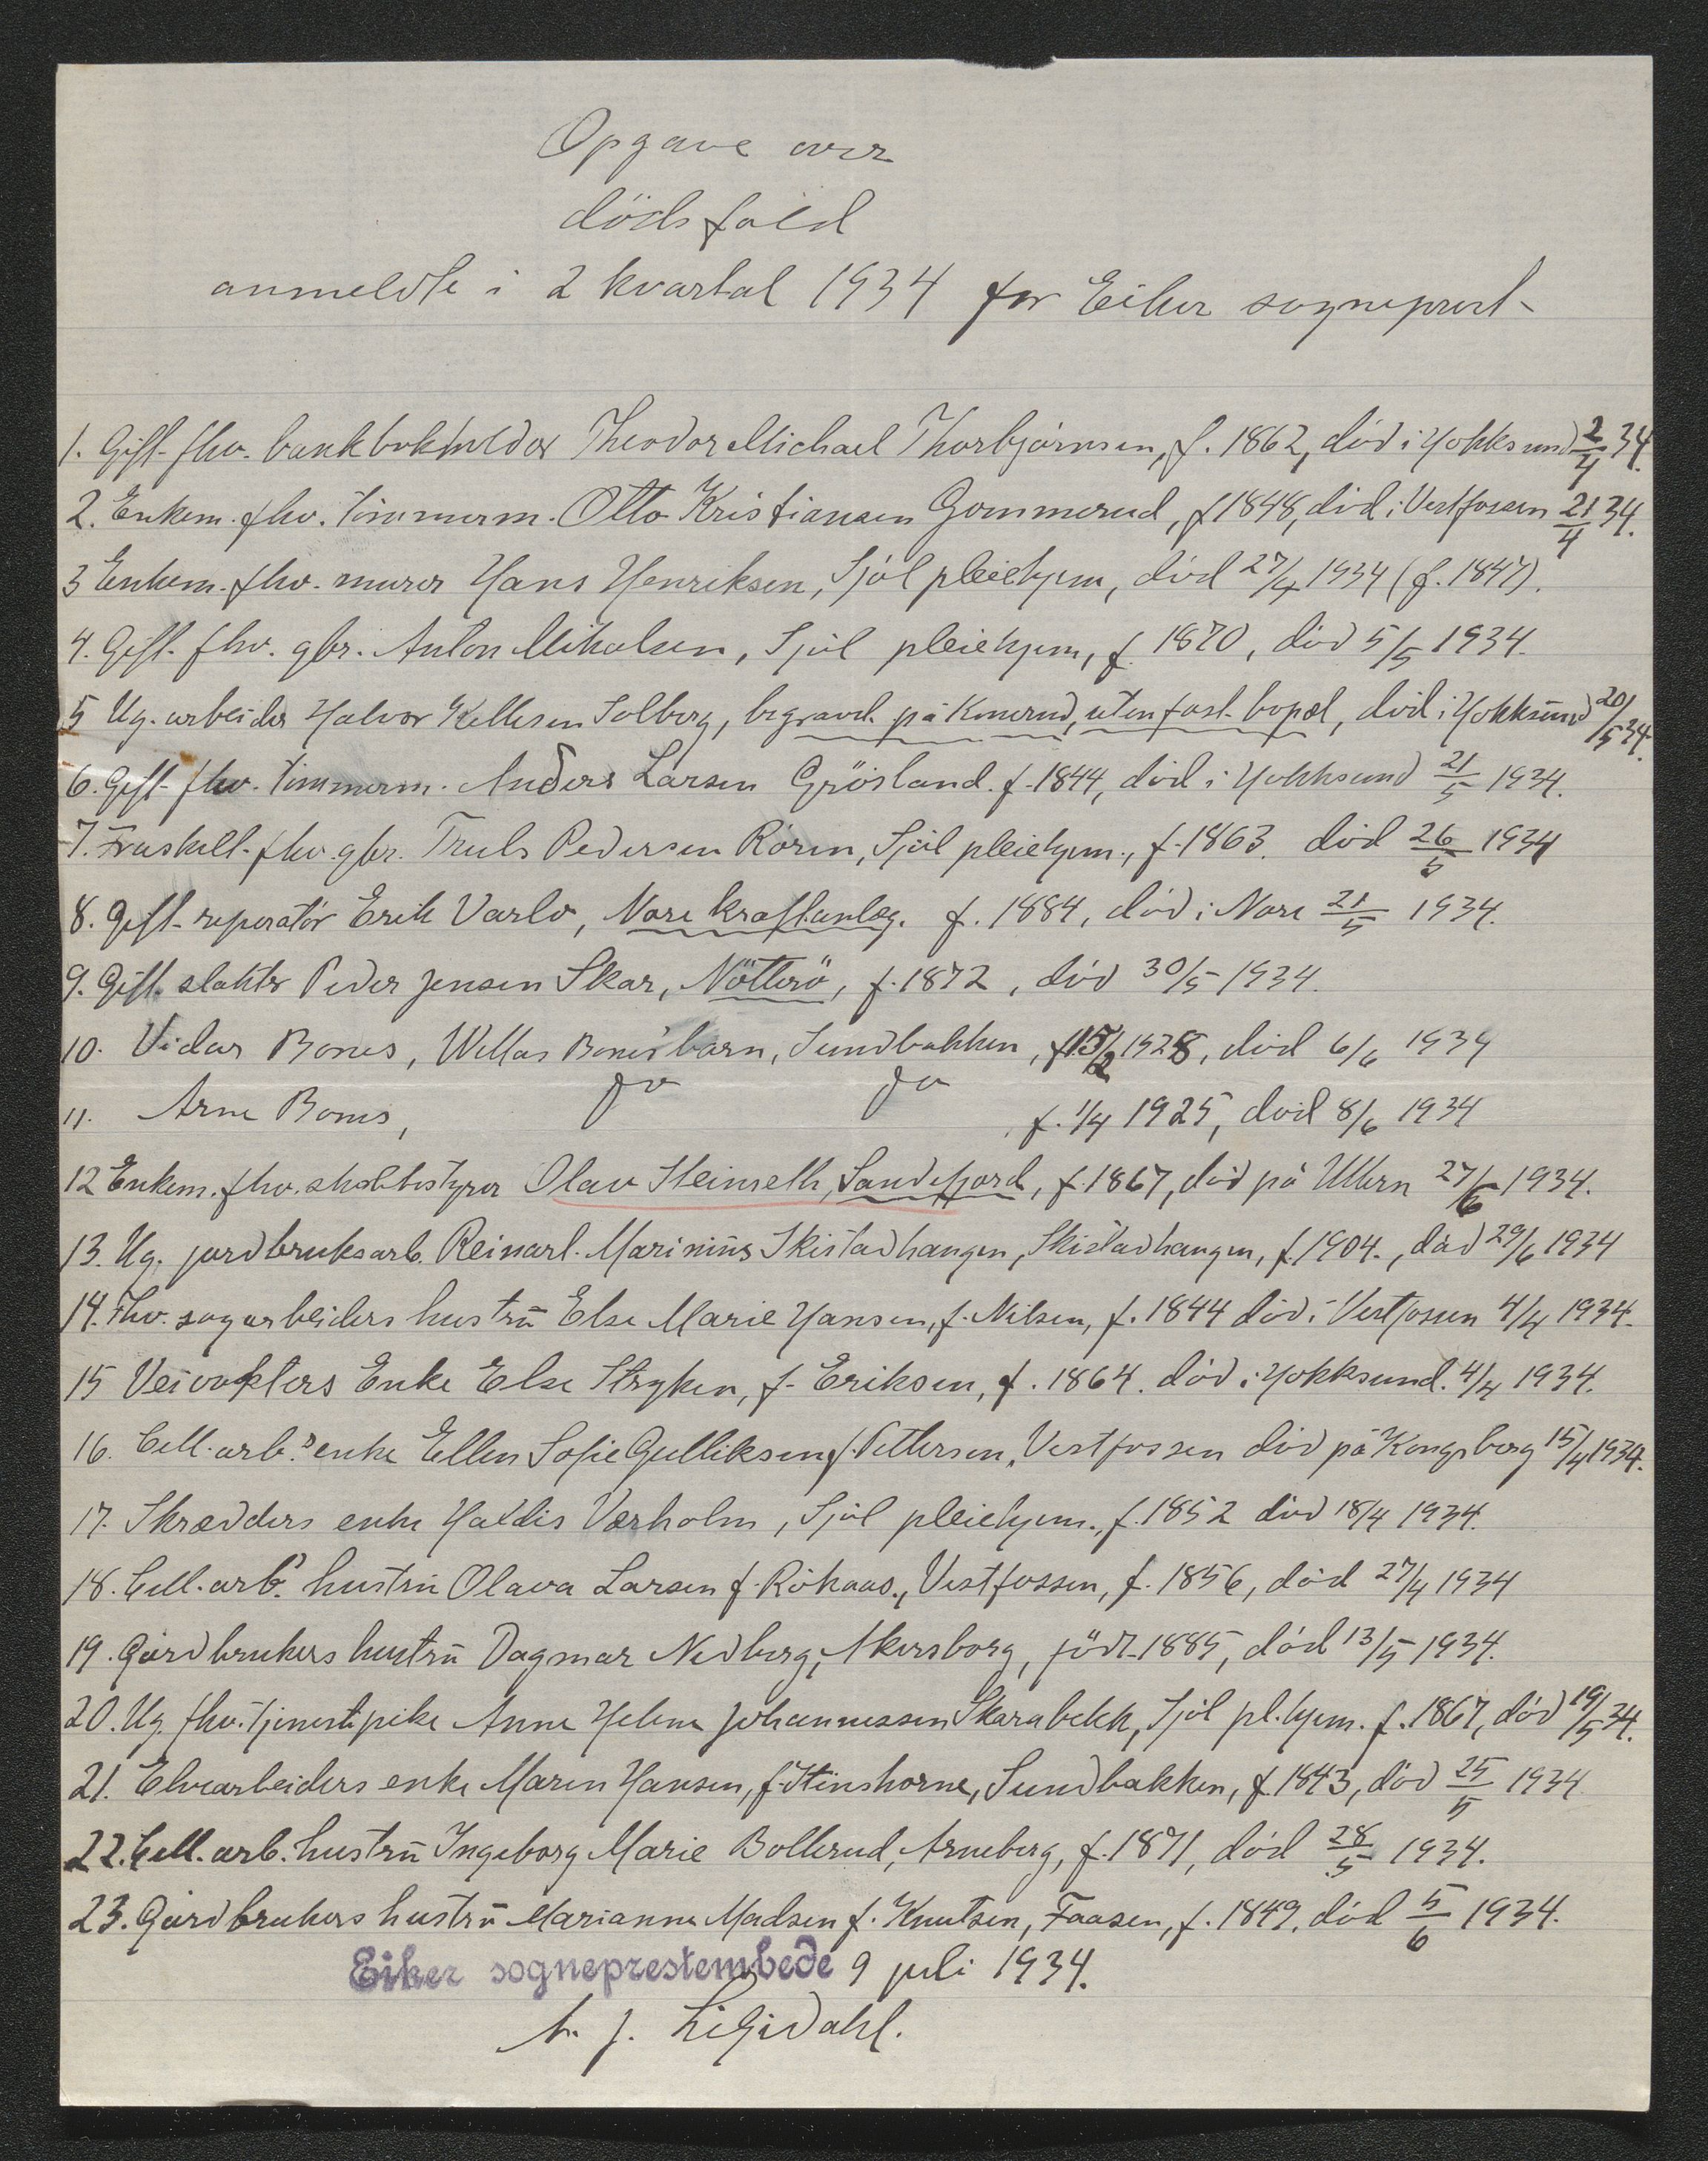 Opgave over
dödsfald
anmeldte i 2 kvartal 1934 for Eiker sogneprest
1. Gift fhv. bankbokholder Theodor Michael Thorbjørnsen, f. 1862, död i Hokksund 2/4 34.
2. Enkem. fhv. tömmerm. Otto Kristiansen Gommerud, f 1848, död i Vestfossen 21/4 34.
3 Enkem. fhv. murer Hans Henriksen, Sjöl pleiehjem, död 27/4 1934 (f. 1847).
4. Gift fhv. gbr. Anton Mikalsen, Sjöl pleiehjem, f. 1870, död 5/5 1934.
5 Ug. arbeider Halvor Kittilsen Solberg, begravet på Knerud, uten fast bopæl, död i Hokksund 20/5 34.
6. Gift fhv. tömmerm. Anders Larsen Grösland. f. 1844, död i Hokksund 21/5 1934.
7. Fraskilt fhv. gbr. Truls Pedersen Rören, Sjöl pleiehjem., f. 1863. död 26/5 1934
8. Gift reperatör Erik Varlo, Nore kraftanlæg. f. 1884, död i Nore 21/5 1934.
9. Gift slakter Peder Jensen Skar, Nötterö, f. 1872, död 30/5 1934.
10. Vidar Bones, Willas Bones' barn, Sundbakken, f 15/2 1928, död 6/6 1934
11. Arne Bones, do do f. 1/4 1925, död 8/6 1934
12 Enkem. fhv. skolebestyrer Olav Steinseth, Sandefjord, f. 1867, död på Ullern 27/6 1934.
13. Ug. jordbruksarb. Reinart Marinius Skistadhangen, Skistadhangen, f. 1904., död 29/6 1934
14. Fhv. sagarbeiders hustrü Else Marie Hansen, f. Nilsen, f. 1844 död i Vestfossen 4/4 1934.
15 Veivokters Enke Else Stryken, f. Eriksen, f. 1864. död i Hokksund. 4/4 1934.
16. Cell. arb.s enke Ellen Sofie Gulliksen f. Pettersen, Vestfossen död på Kongsberg 15/4 1934.
17. Skrædders enke Haldis Værholm, Sjöl pleiehjem., f. 1852 död 18/4 1934.
18. Cell. arb.s hustru Olava Larsen f. Rökaas., Vestfossen, f. 1856, död 27/4 1934
19. Gårdbrukers hustrü Dagmar Nedberg, Akersborg, född 1885, död 13/5 1934.
20. Ug. fhv. tjenestepike Anne Helene Johannessen Skarabekk, Sjöl pl.hjem. f. 1867, död 19/5 34.
21. Elvearbeiders enke Maren Hansen, f. Stinshorne, Sundbakken, f. 1843, död 25/5 1934
22. Cell. arb. hustrü Ingeborg Marie Bollerud, Arneberg, f. 1871, död 28/5 1934.
23. Gårdbrukers hustrü Marianne Madsen f. Knutsen, Faasen, f. 1849, död 5/6 1934.
Eiker sogneprestembede 9 juli 1934.